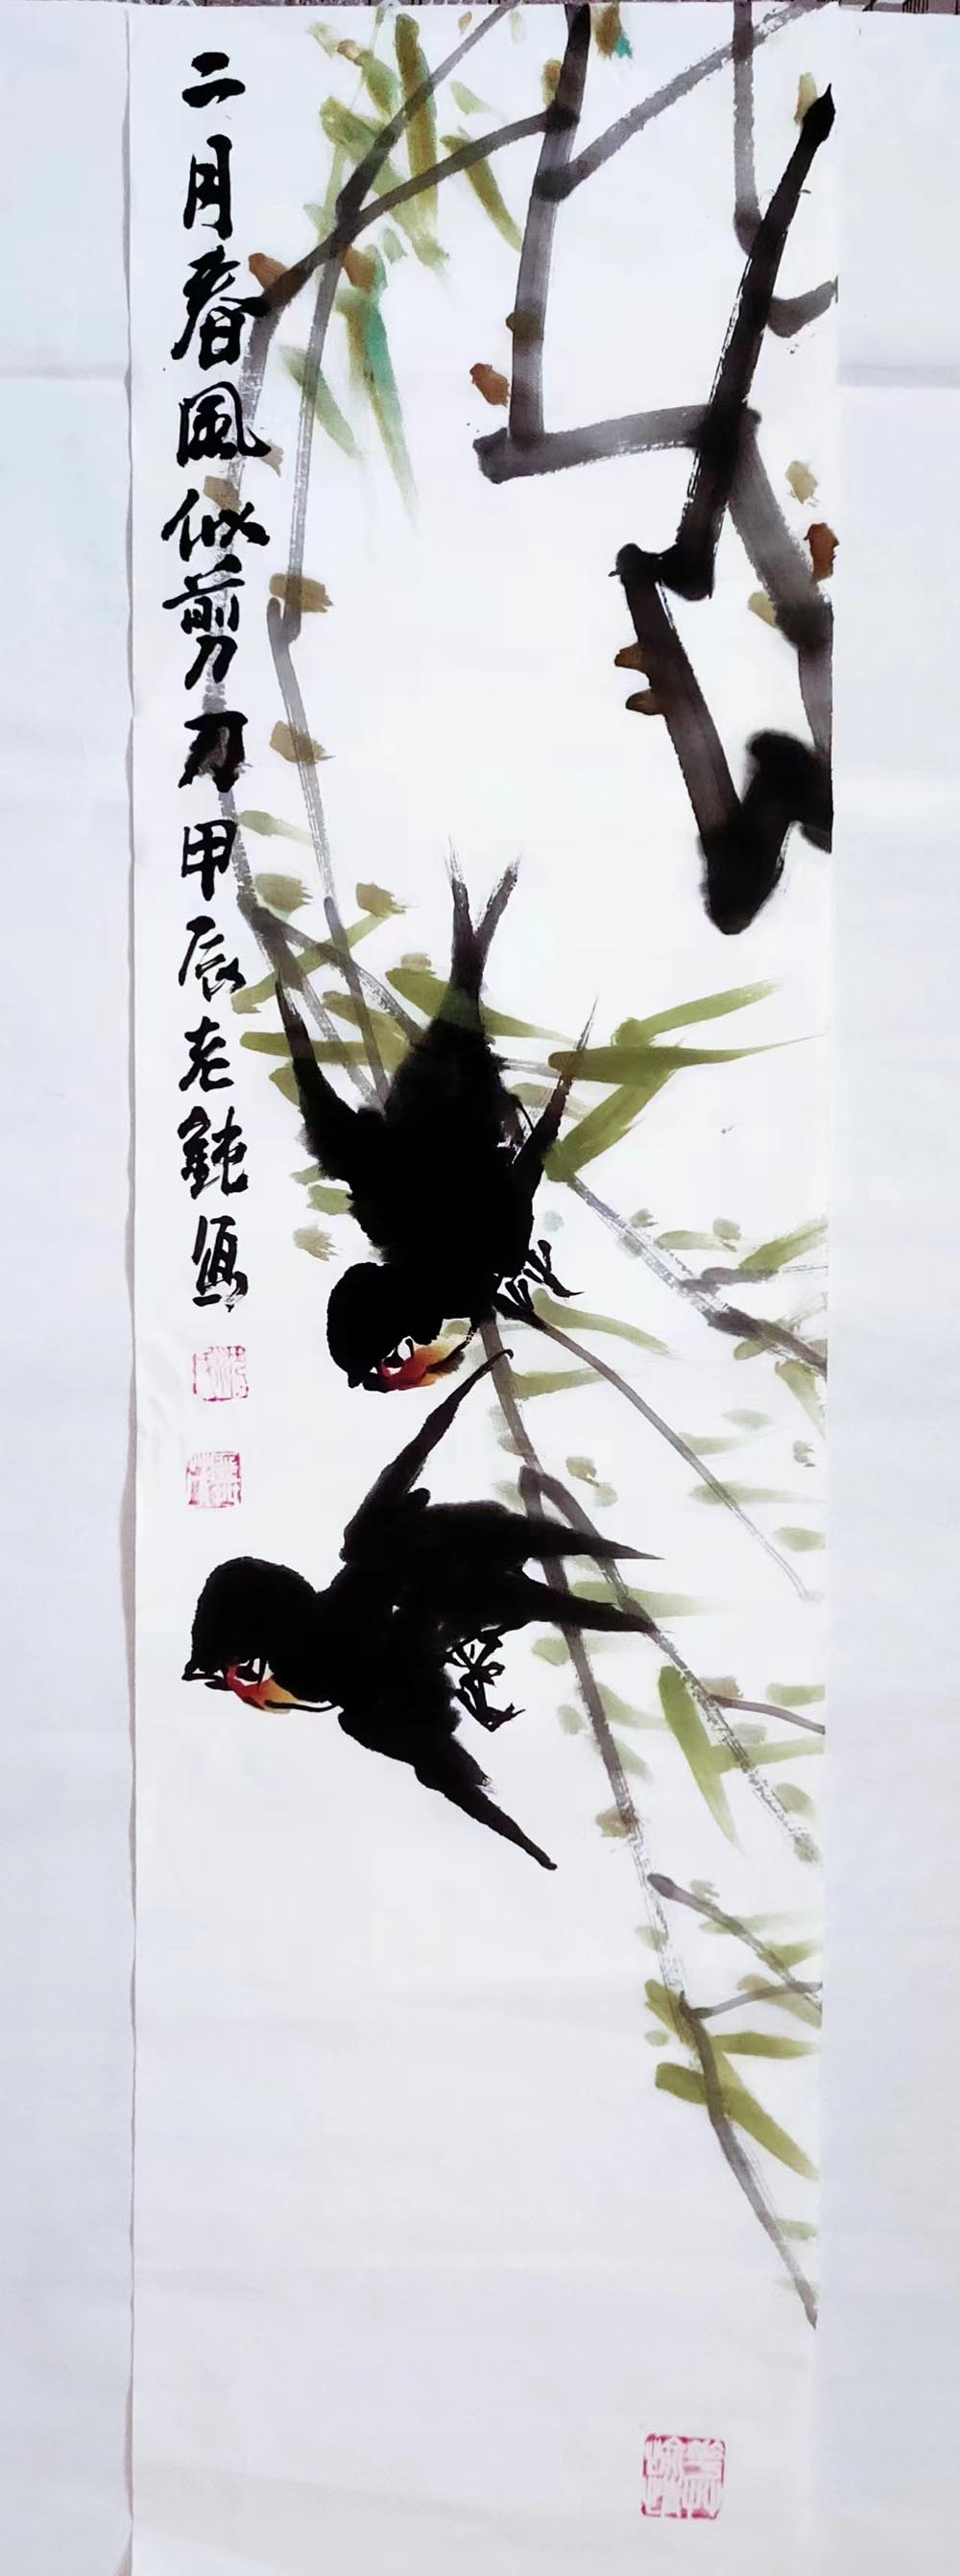 二月春風似剪刀甲辰老鈍寫